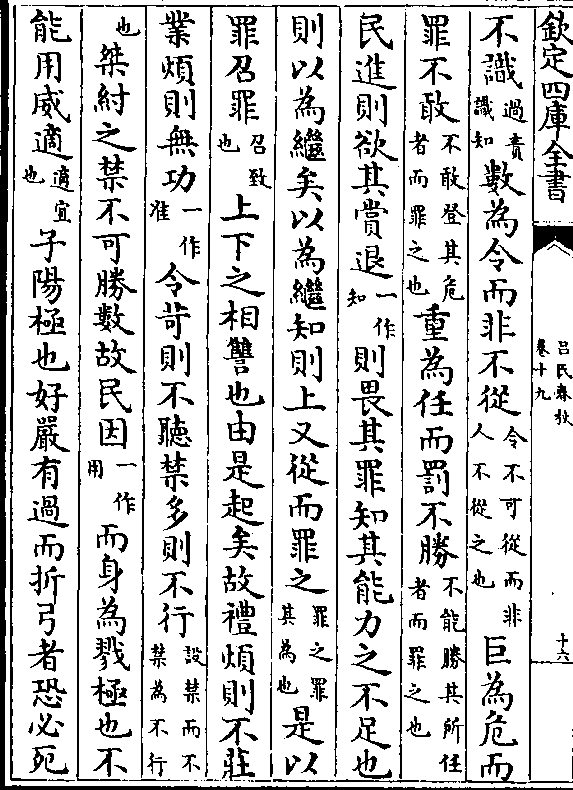 欽定四庫全書
呂氏春秋
卷十九
十六
不識過責識知數為令而非不從令不可從而非人不從之也巨為危而
罪不敢不敢登其危者而罪之也重為任而罰不勝不能勝其所任者而罪之也
民進則欲其賞退一作知則畏其罪知其能力之不足也
則以為繼矣以為繼知則上又從而罪之罪之罪其為也是以
罪召罪召致也上下之相讐也由是起矣故禮煩則不莊
業煩則無功一作准令苛則不聽禁多則不行設禁而不禁為不行
也桀紂之禁不可勝數故民因一作用而身為戮極也不
能用威適適宜也子陽極也好嚴有過而折弓者恐必死